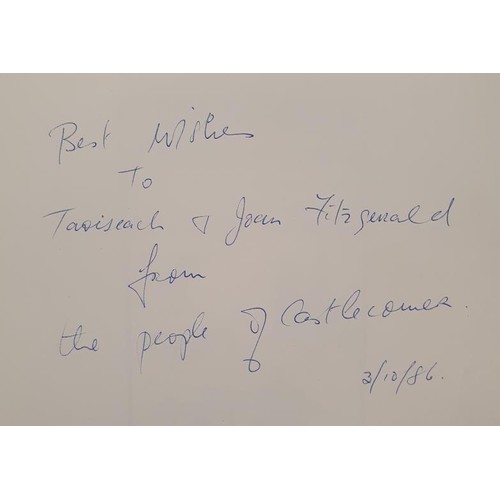 Best Wishes
To
Taoiseach & Joan Fitzgerald
from
the people of Castlecomer.
3/10/86.